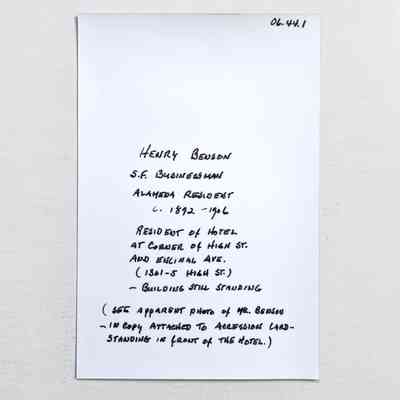 06.44.1
HENRY BENSON
S.F. BUSINESSMAN
ALAMEDA RESIDENT
C. 1892 - 1906
RESIDENT OF HOTEL
AT CORNER OF HIGH ST.
AND ENCINAL AVE.
(1301-5 HIGH ST.)
- BUILDING STILL STANDING
(SEE APPARENT PHOTO OF MR. BENSON
- IN COPY ATTACHED TO ACCESSION CARD-
STANDING IN FRONT OF THE HOTEL.)